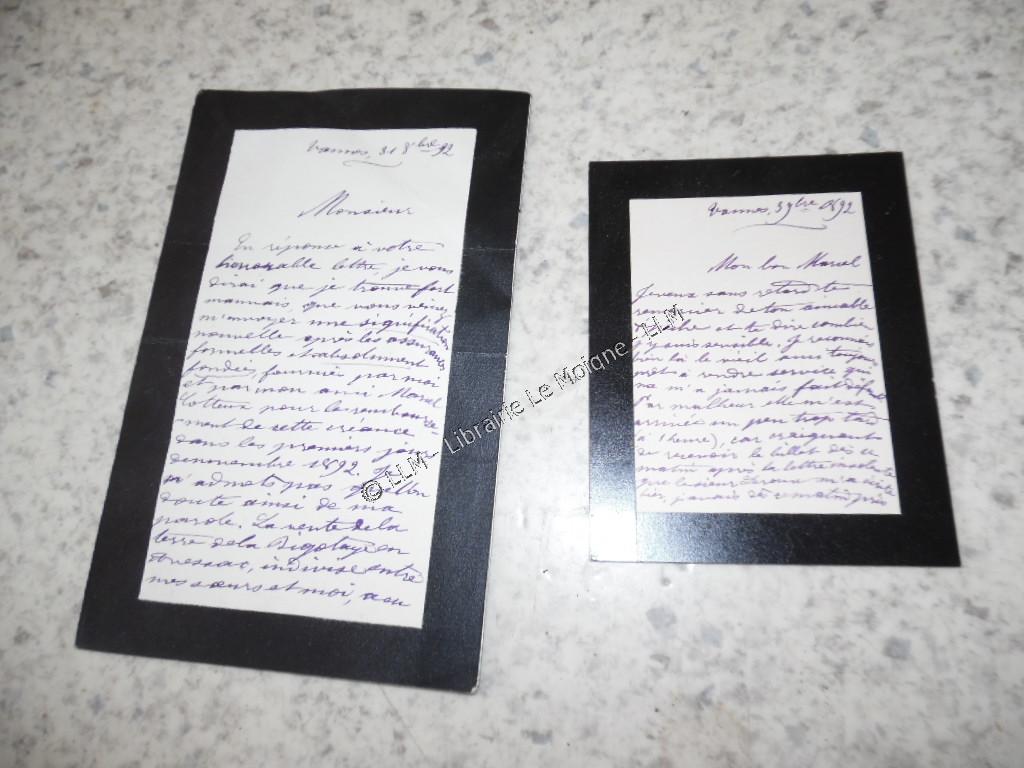 Vannes, 31 8bre 92
Monsieur
En réponse à votre
honorable lettre je vous
dirai que je trouve fort
mauvais que vous veniez
m'envoyer une signification
nouvelle après les assurances
formelles et absolument
fondées, fournies par moi
et par mon ami Marcel
Cotteux pour le rembourse-
ment de cette créance
dans les premiers jours
de novembre 1892. Je
n'admets pas que l'on
doute ainsi de ma
parole. La vente de la
terre de la Bigotaye en
indivise entre
mes sœurs et moi, a eu
Vannes, 3 9bre 1892
Mon bon Marcel
Je veux sans retard te
remercier de ton amiable
et te dire combien
j'y suis sensible. Je reconnais
bien là le vieil ami toujours
prêt à rendre service qui
ne m'a jamais fait défaut
Par malheur elle m'est
arrivée un peu trop tard
à 1 heure), car craignant
de recevoir le billet dès ce
matin après la lettre
que le sieur Leroux m'a écrite
hier, j'avais dès ce matin pris
© LLM - Librairie Le Moigne - LLM